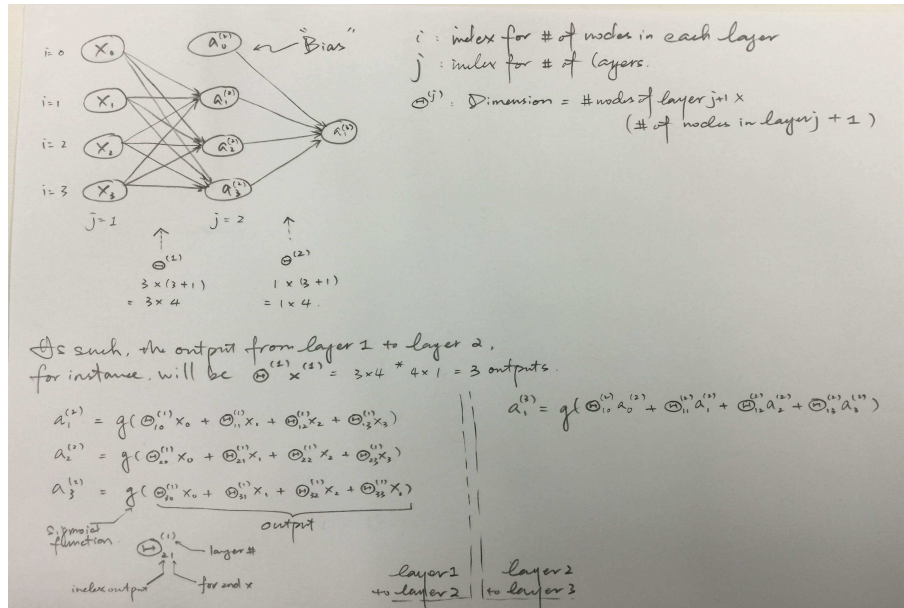 i=0 x₀ a₀⁽²⁾ "Bias"
i=1 x₁ a₁⁽²⁾
i=2 x₂ a₂⁽²⁾ a₁⁽³⁾
i=3 x₃ a₃⁽²⁾
j=1 j=2
Θ⁽¹⁾ Θ⁽²⁾
3×(3+1) 1×(3+1)
= 3×4 = 1×4.
i : index for # of nodes in each layer
j : index for # of layers.
Θ⁽ʲ⁾: Dimension = # nodes of layer j+1 ×
(# of nodes in layer j + 1)
As such, the output from layer 1 to layer 2,
for instance, will be Θ⁽¹⁾x⁽¹⁾ = 3×4 * 4×1 = 3 outputs.
a₁⁽²⁾ = g(Θ₁₀⁽¹⁾x₀ + Θ₁₁⁽¹⁾x₁ + Θ₁₂⁽¹⁾x₂ + Θ₁₃⁽¹⁾x₃)
a₂⁽²⁾ = g(Θ₂₀⁽¹⁾x₀ + Θ₂₁⁽¹⁾x₁ + Θ₂₂⁽¹⁾x₂ + Θ₂₃⁽¹⁾x₃)
a₃⁽²⁾ = g(Θ₃₀⁽¹⁾x₀ + Θ₃₁⁽¹⁾x₁ + Θ₃₂⁽¹⁾x₂ + Θ₃₃⁽¹⁾x₃)
sigmoid
function.
output
Θ₂₁⁽¹⁾ layer #
index output for 2nd x
layer 1
to layer 2
a₁⁽³⁾ = g(Θ₁₀⁽²⁾a₀⁽²⁾ + Θ₁₁⁽²⁾a₁⁽²⁾ + Θ₁₂⁽²⁾a₂⁽²⁾ + Θ₁₃⁽²⁾a₃⁽²⁾)
layer 2
to layer 3